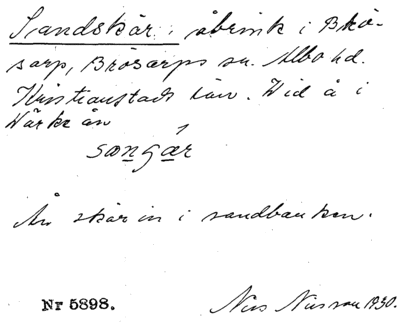 Sandskär, åbrink i Brö-
sarp, Brösarps sn. Albo hd.
Kristianstads län. Vid å i
Värkeån
sangár
Ån skär in i sandbanken.
Nr 5898.
Nils Nilsson 1930.